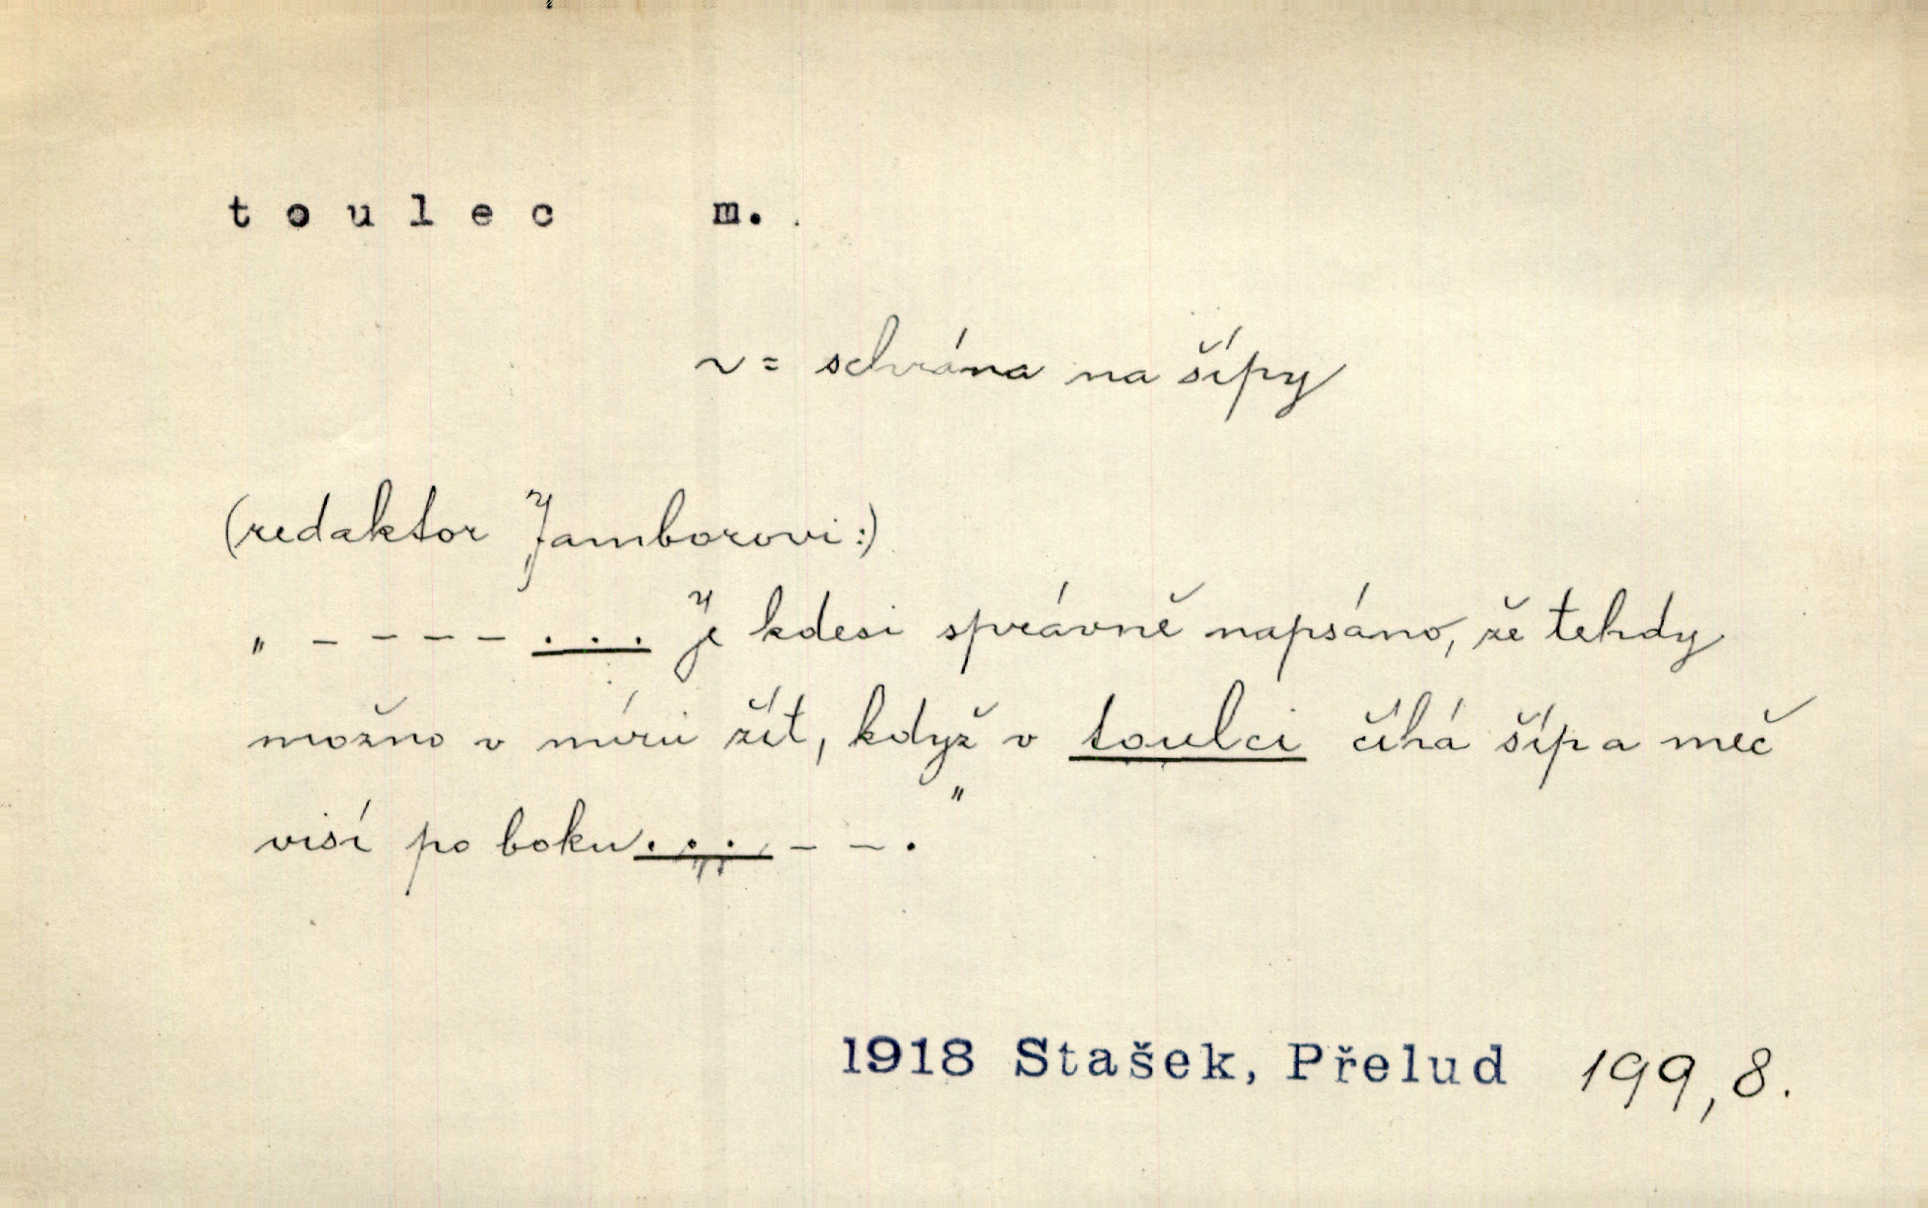 toulec m.
~ = schrána na šípy
(redaktor Jamborovi:)
„ - - - - . . . Je kdesi správně napsáno, že tehdy
možno v míru žít, když v toulci číhá šíp a meč
visí po boku . . . - - . "
1918 Stašek, Přelud 199,8.